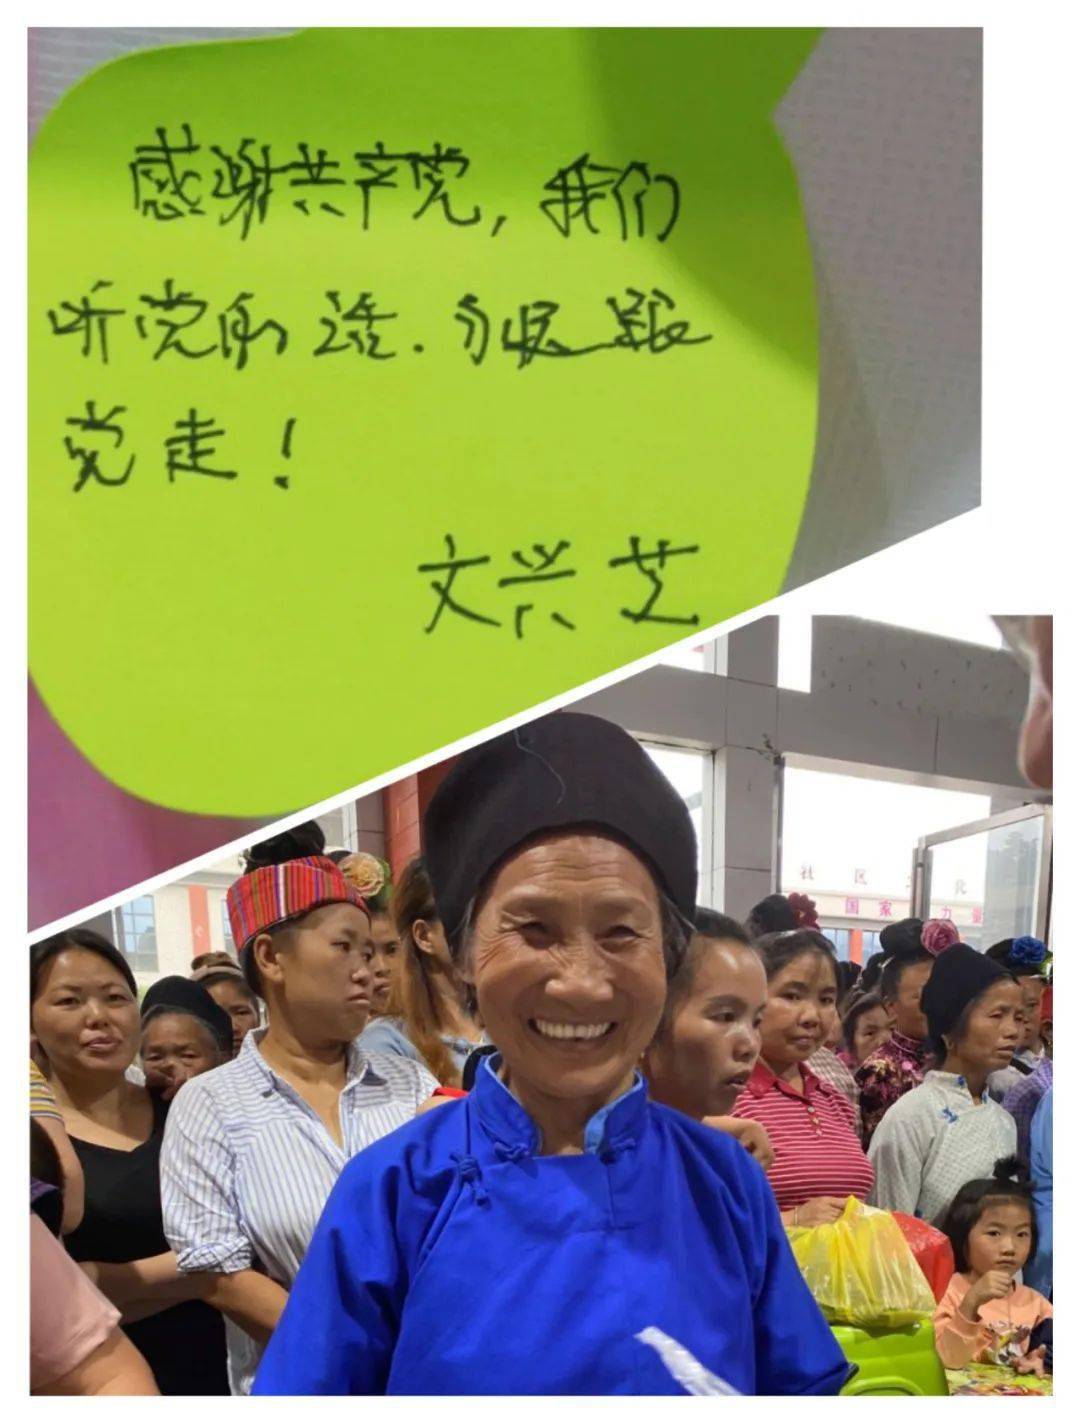 感谢共产党，我们
听党的话.跟
党走！
文兴芝
社区 化
国家 力量